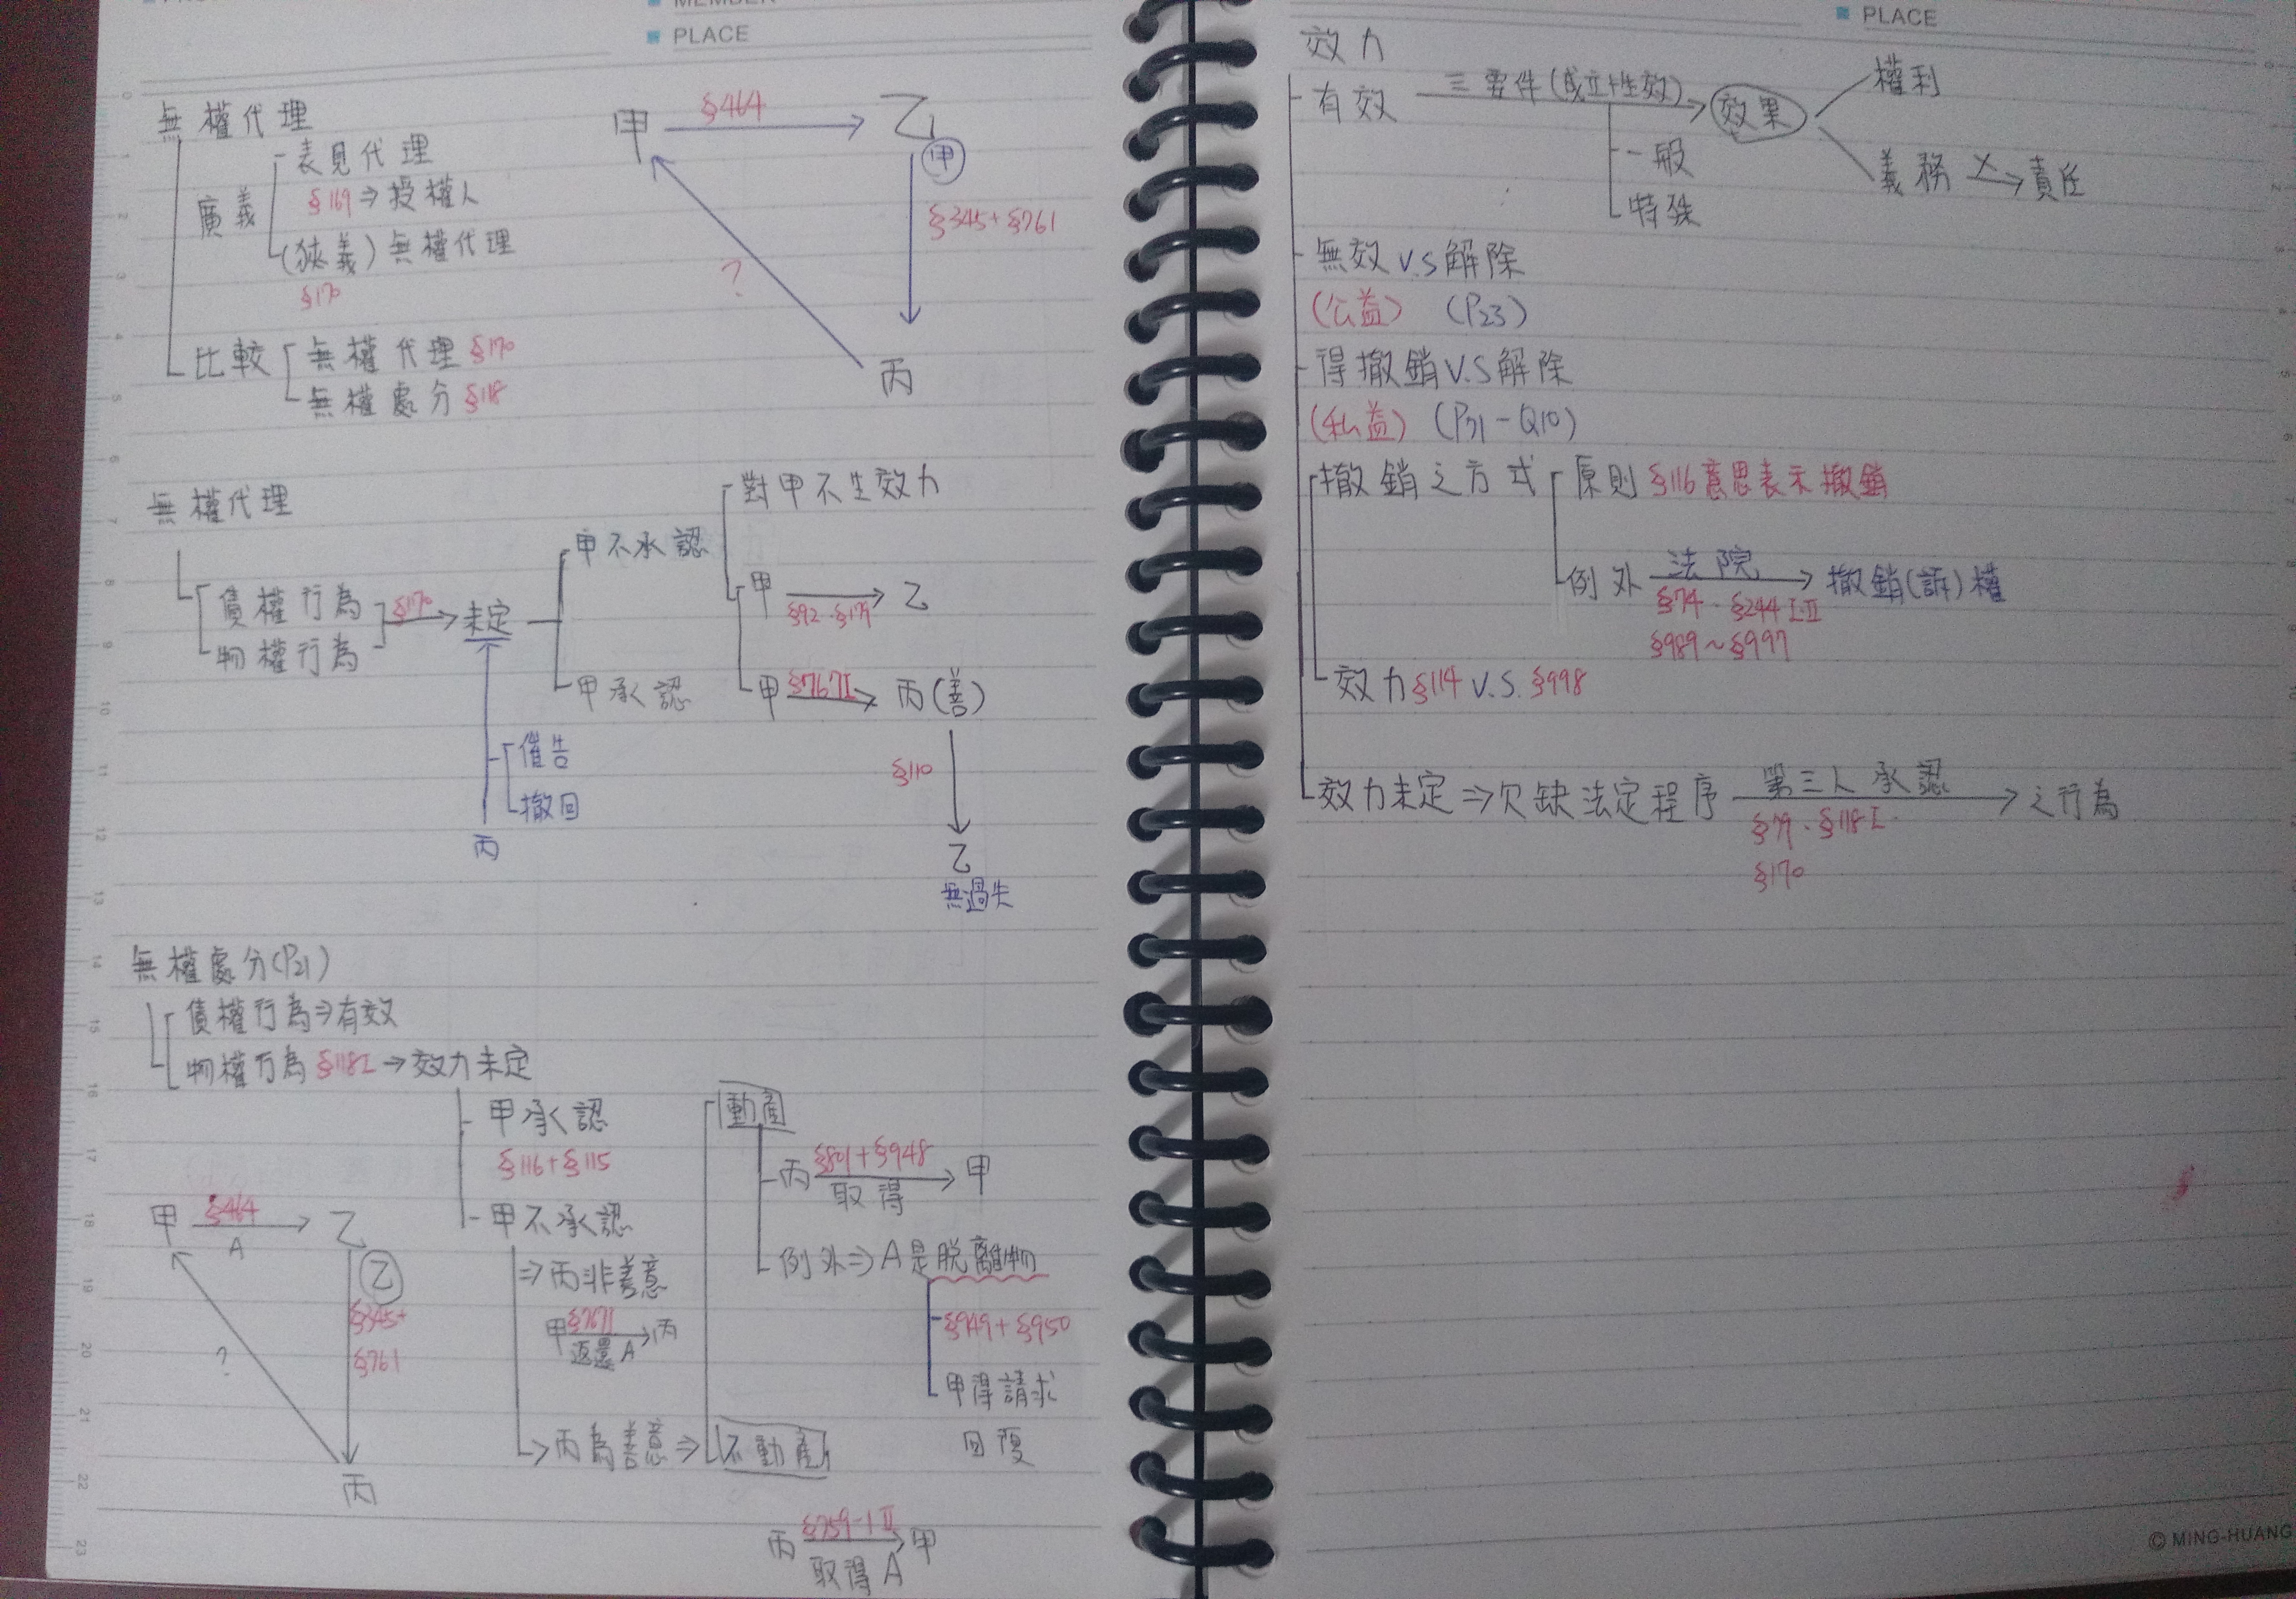 MEMBER
PLACE
無權代理
廣義
表見代理
§169⇒授權人
(狹義)無權代理
§170
比較
無權代理 §170
無權處分 §118
甲 §464 乙
甲
§345+§761
?
丙
無權代理
債權行為
物權行為
§170
未定
甲不承認
對甲不生效力
甲 乙
§92、§179
甲 §767I 丙(善)
§110
乙
無過失
甲承認
催告
撤回
丙
無權處分(P21)
債權行為⇒有效
物權行為 §118I→效力未定
甲承認
§116+§115
甲不承認
⇒丙非善意
甲 §767I 丙
返還A
→丙為善意⇒
動產
丙 §801+§948 甲
取得
例外⇒A是脫離物
§949+§950
甲得請求
回復
不動產
丙 §759-1Ⅱ 甲
取得A
甲 §464 乙
A
乙
§345+
§761
?
丙
PLACE
效力
有效 三要件(成立+生效) 效果
權利
義務 責任
一般
特殊
無效V.S解除
(公益) (P23)
得撤銷V.S解除
(私益) (P71-Q10)
撤銷之方式
原則 §116意思表示撤銷
例外 法院 撤銷(訴)權
§74、§244Ⅰ.Ⅱ
§989~§997
效力§114 V.S. §998
效力未定⇒欠缺法定程序 第三人承認 之行為
§79、§118I
§170
© MING-HUANG